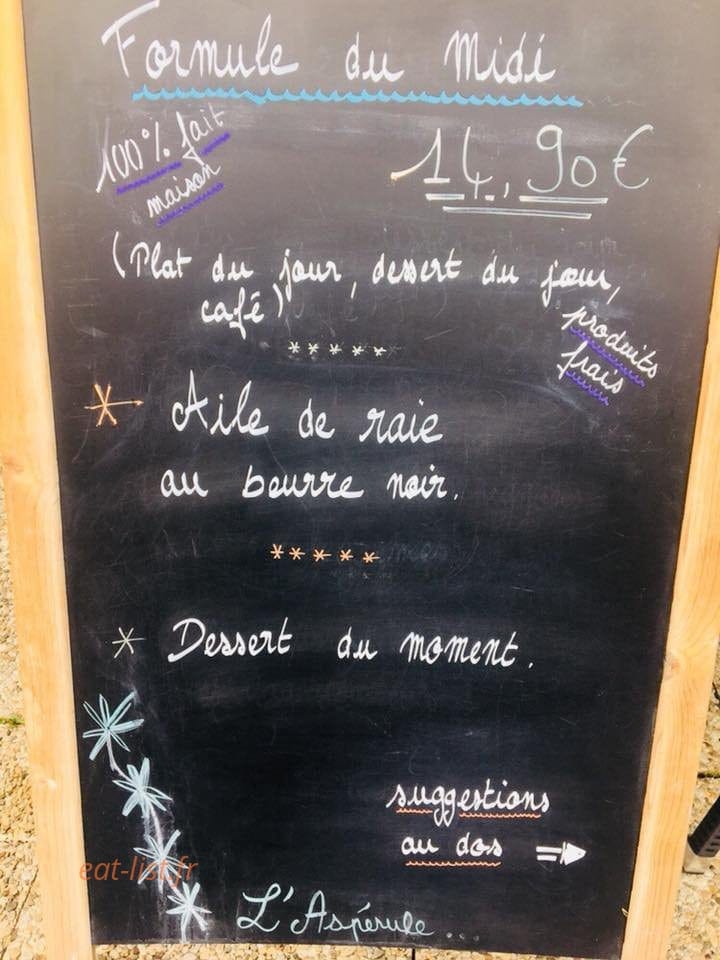 Formule du Midi
100% fait
maison
14,90€
(Plat du jour, dessert du jour,
café)
produits
frais
*****
* Aile de raie
au beurre noir.
*****
* Dessert du moment.
suggestions
au dos ⇒
eat-list.fr
L'Aspérule...